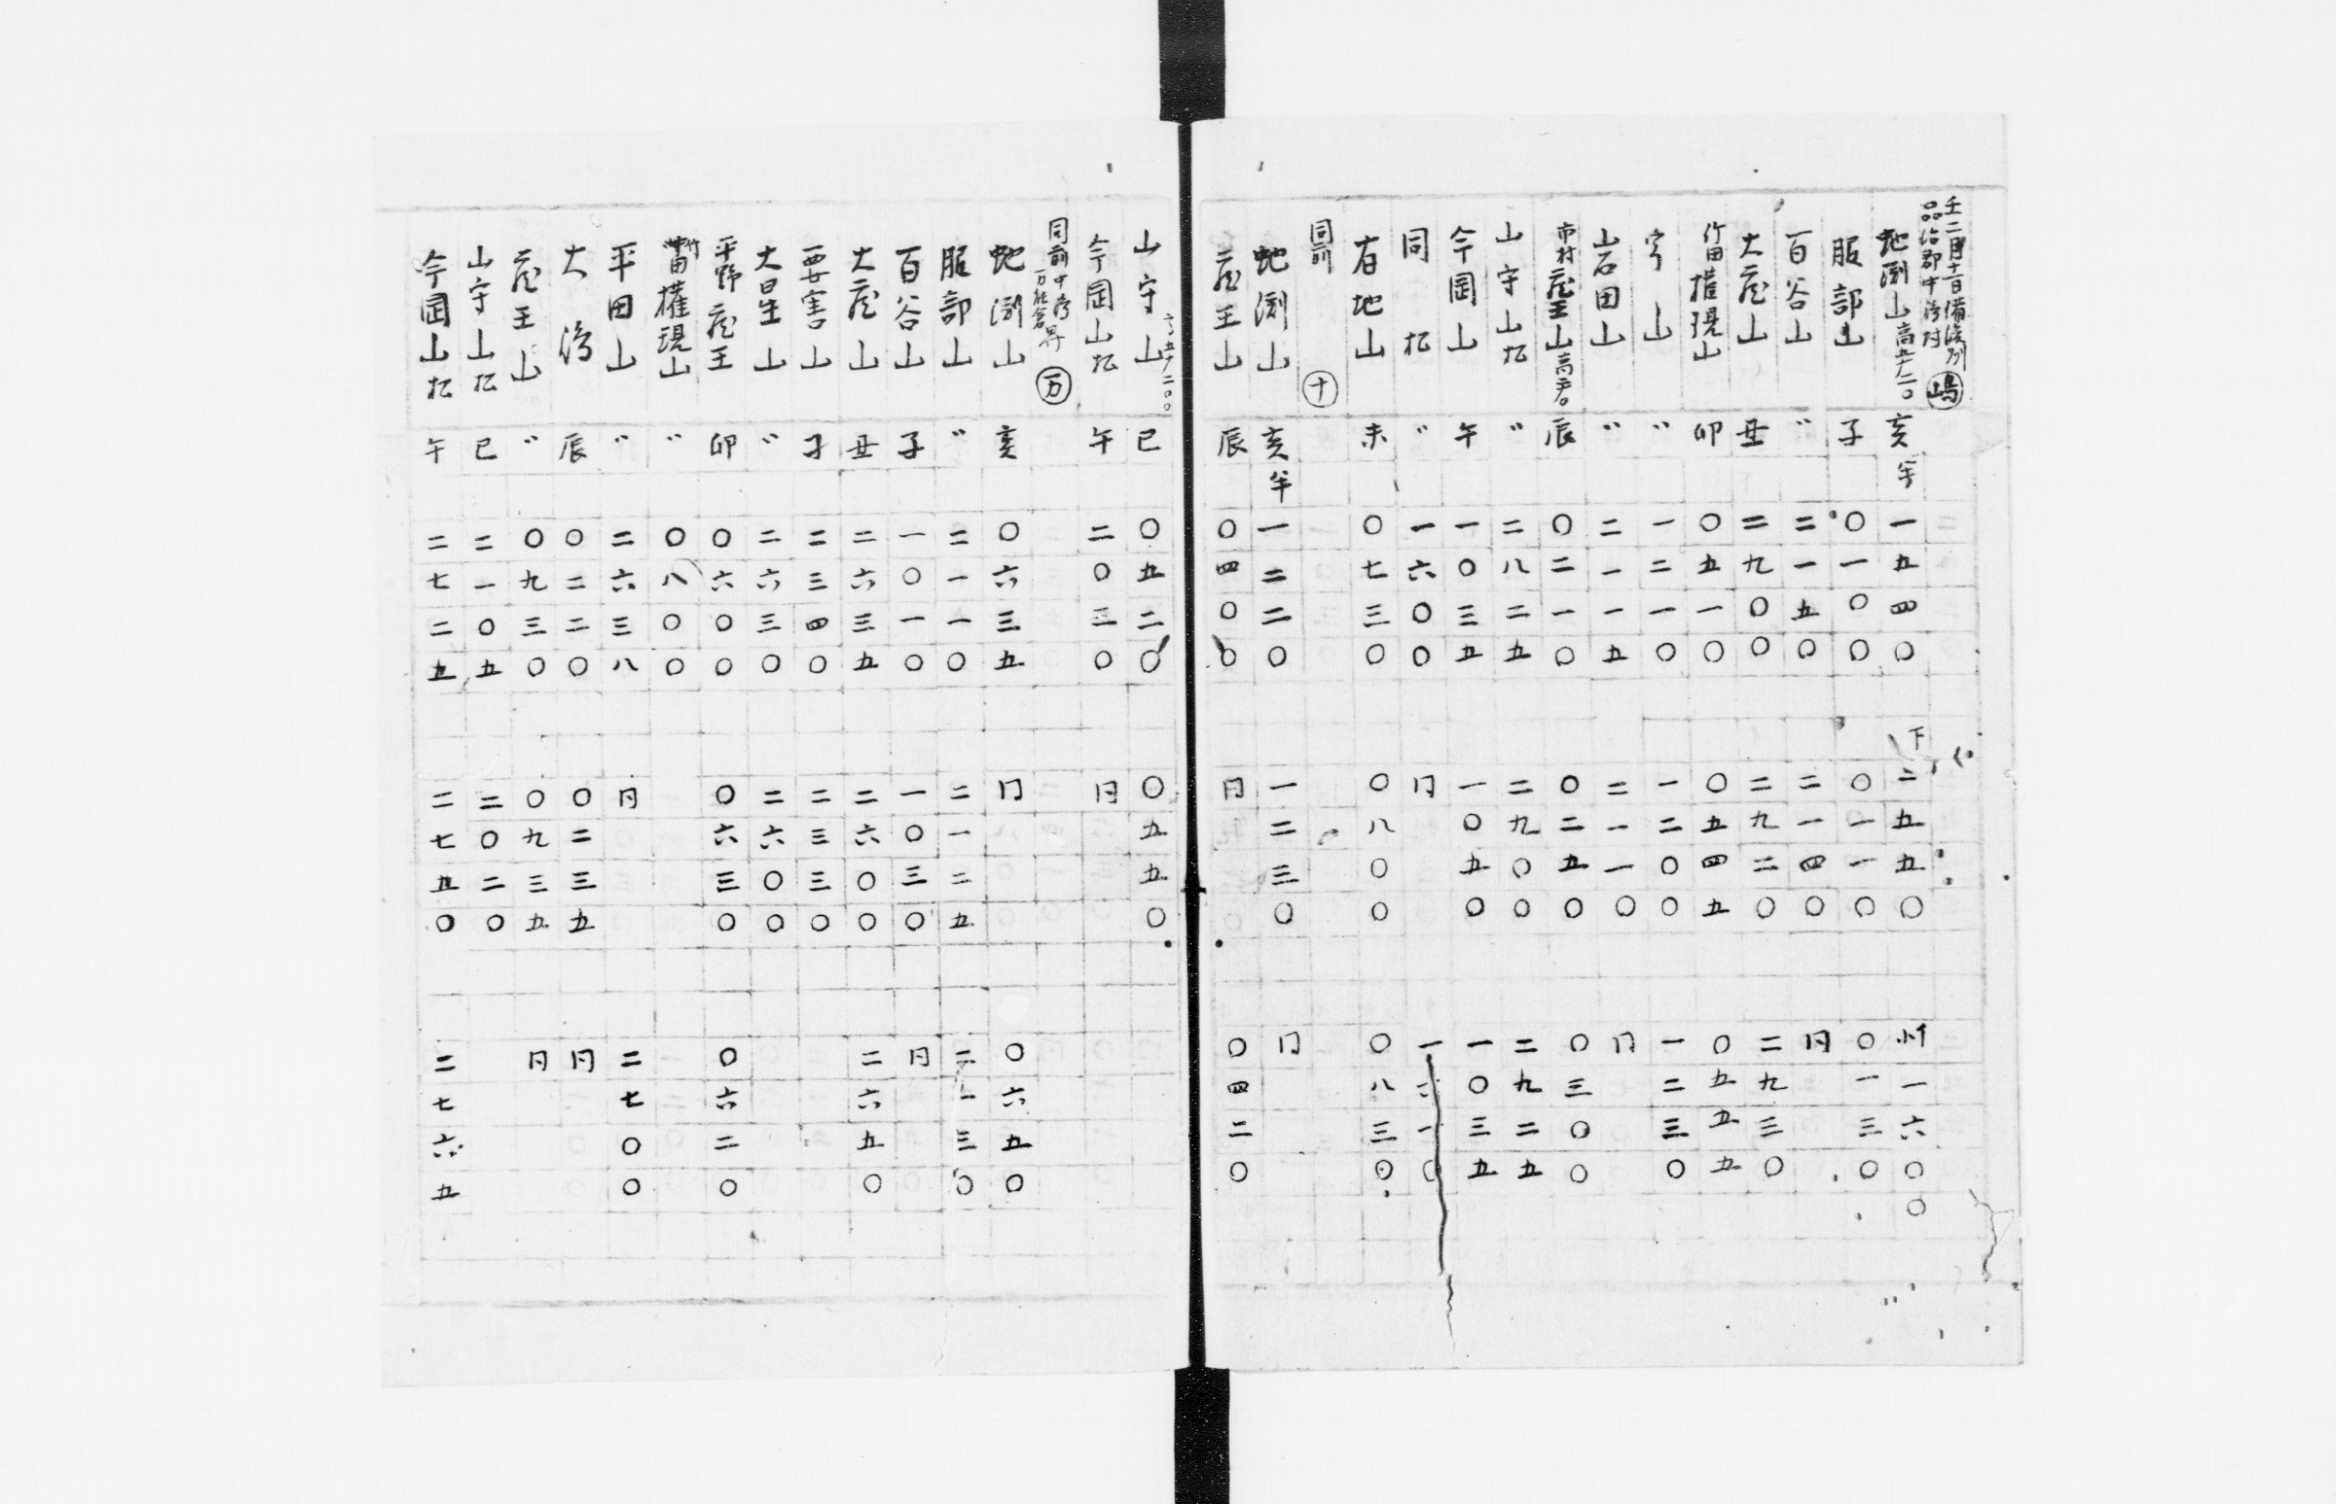 壬二月十一日備後州
品治郡中濱村 嶋
蛇渕山 高五十二〇 亥半 一五四〇 下二五五〇 小一六〇〇
服部山 子 〇一〇〇 〇一一〇 〇一三〇
百谷山 〃 二一五〇 二一四〇 同
大蔵山 丑 二九〇〇 二九二〇 二九三〇
竹田権現山 卯 〇五一〇 〇五四五 〇五五五
山 〃 一二一〇 一二〇〇 一二三〇
岩田山 〃 二一一五 二一一〇 同
市村蔵王山 辰 〇二一〇 〇二五〇 〇三〇〇
山守山松 〃 二八二五 二九〇〇 二九二五
今岡山 午 一〇三五 一〇五〇 一〇三五
同松 〃 一六〇〇 同
有地山 未 〇七三〇 〇八〇〇 〇八三〇
同前 十
蛇渕山 亥半 一二二〇 一二三〇 同
蔵王山 辰 〇四〇〇 同 〇四二〇
山守山 巳 〇五二〇 〇五五〇
今岡山松 午 二〇三〇 同
同前中濱 万
蛇渕山 亥 〇六三五 同 〇六五〇
服部山 〃 二一一〇 二一二五 二一三〇
百谷山 子 一〇一〇 一〇三〇 同
大蔵山 丑 二六三五 二六〇〇 二六五〇
要害山 子 二三四〇 二三三〇
大日生山 〃 二六三〇 二六〇〇
平野蔵王 卯 〇六〇〇 〇六三〇 〇六二〇
権現山 〃 〇八〇〇
平田山 〃 二六三八 同 二七〇〇
大濱 辰 〇二二〇 〇二三五 同
蔵王山 〃 〇九三〇 〇九三五 同
山守山松 巳 二一〇五 二〇二〇
今岡山松 午 二七二五 二七五〇 二七六五